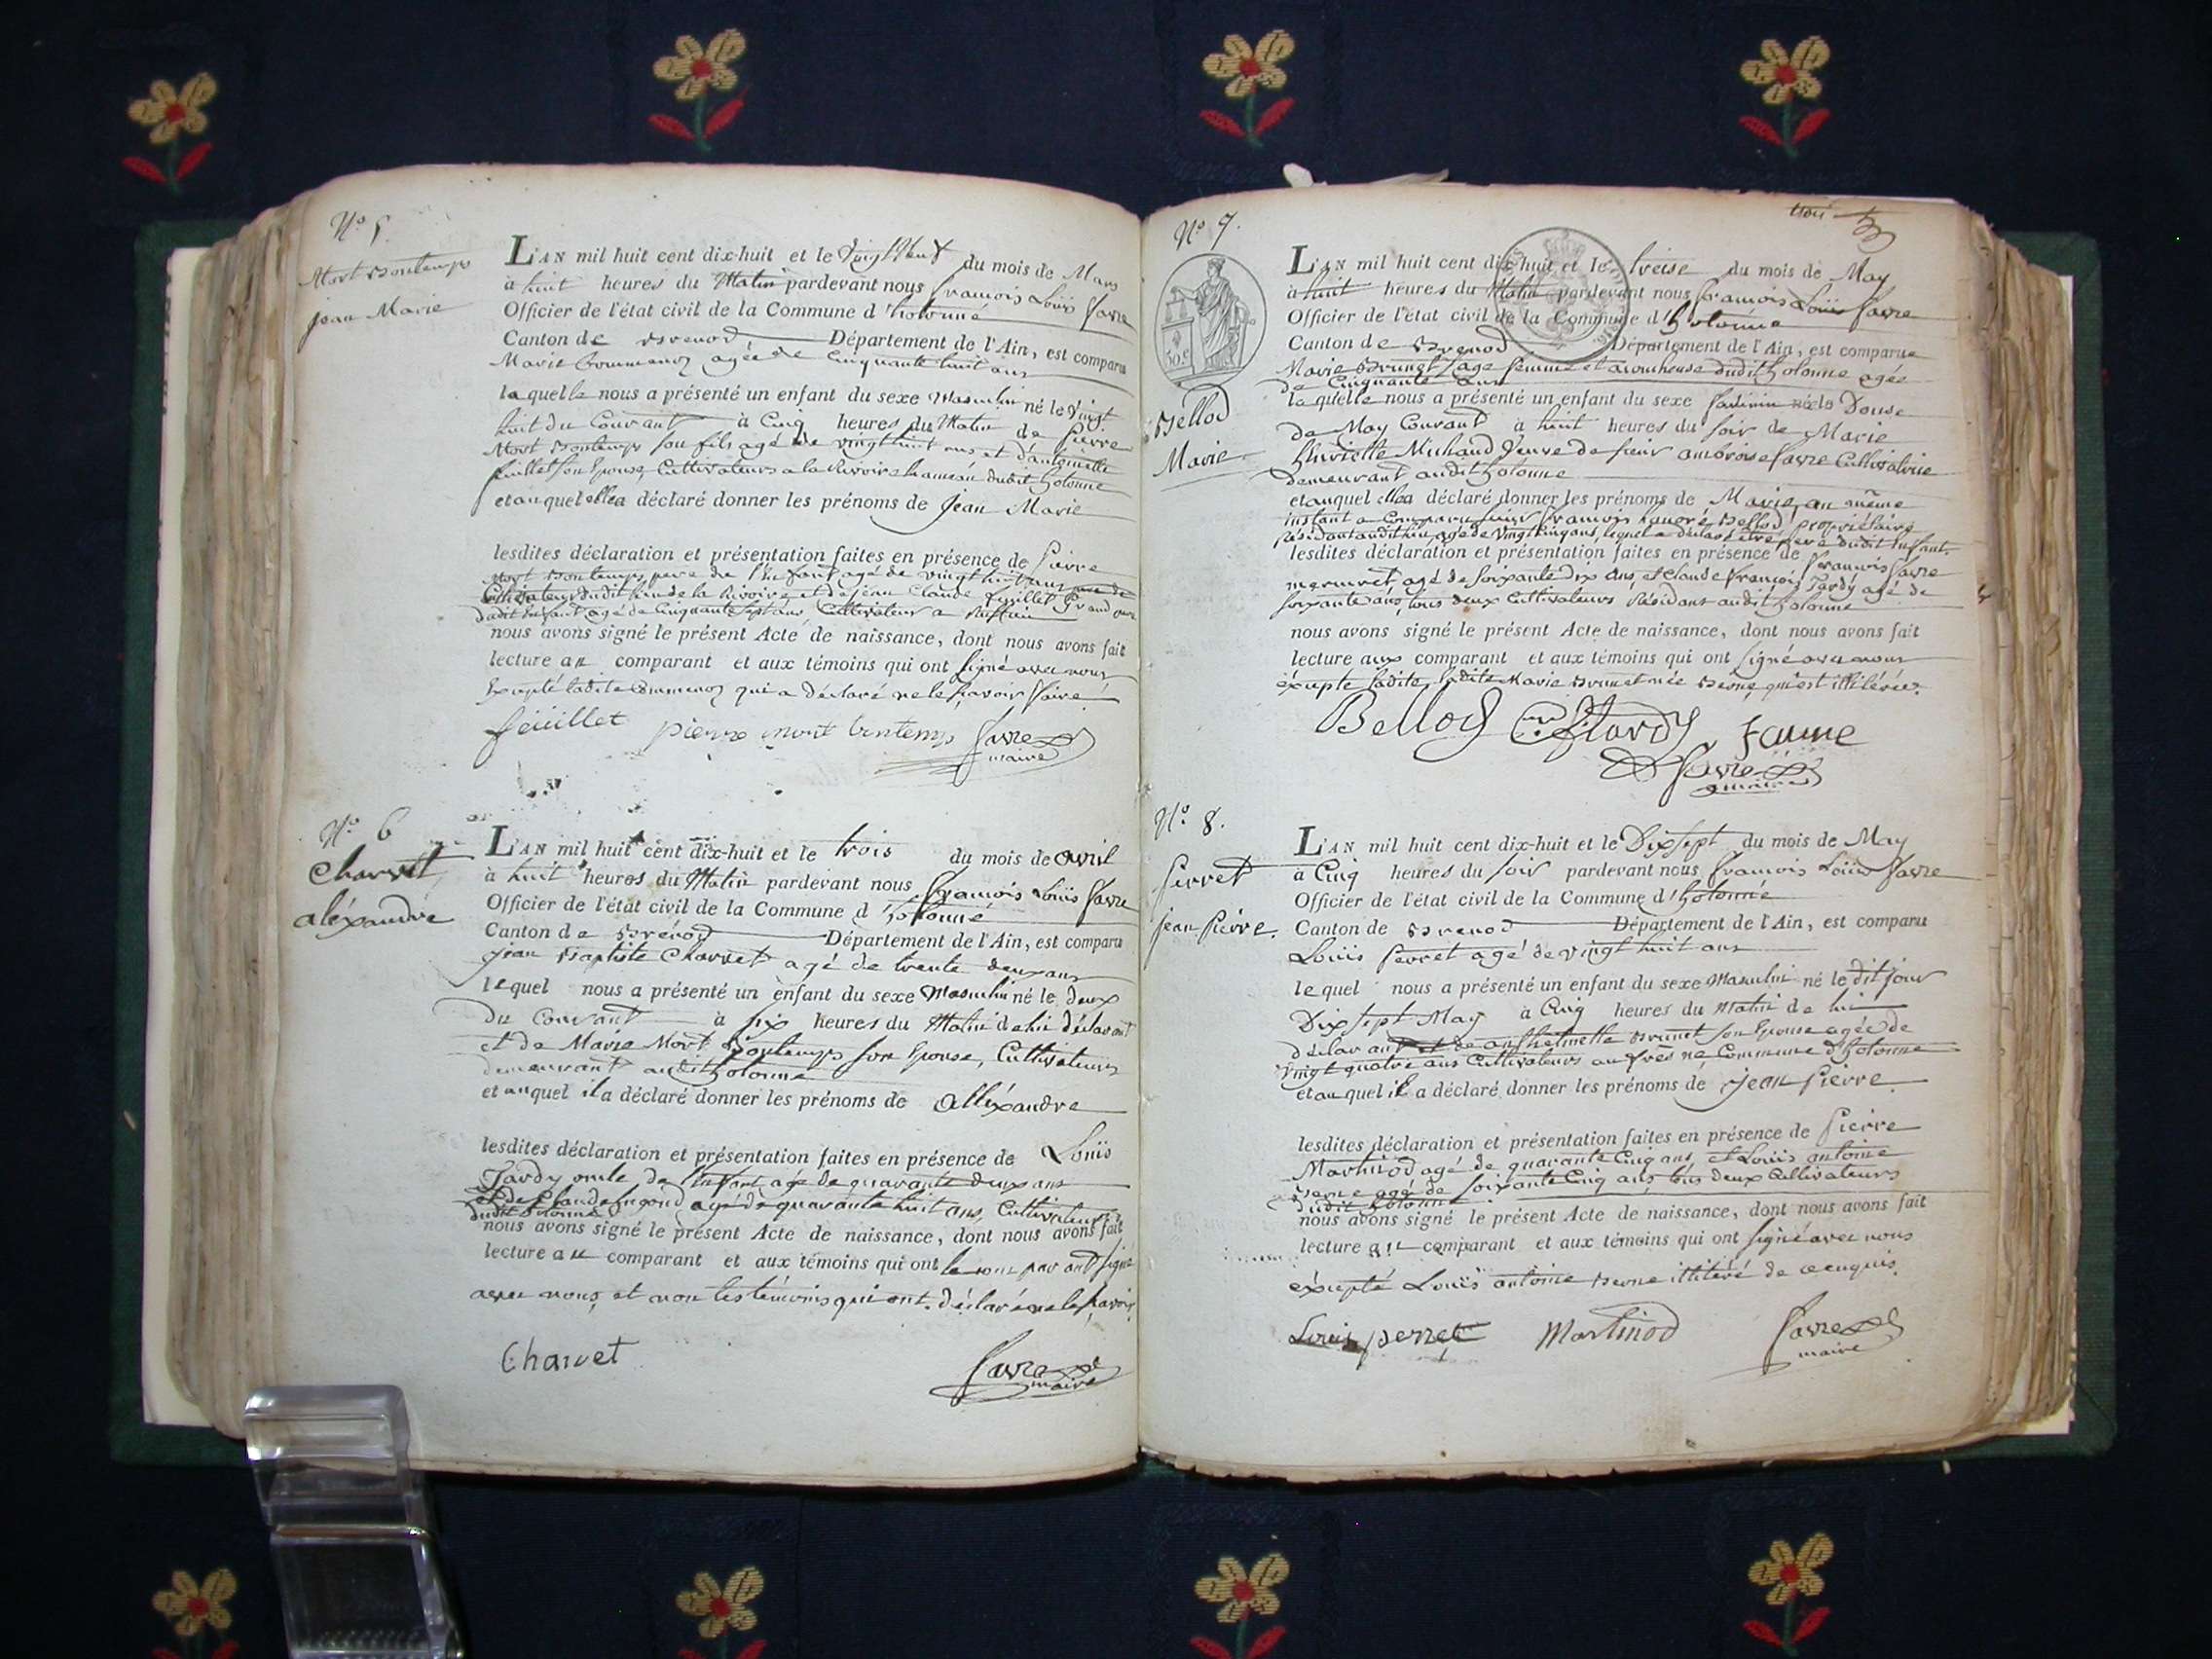 N.º 5.
Mort Bontemps
jean Marie
L'AN mil huit cent dix-huit et le vingt huit du mois de Mars
à huit heures du Matin pardevant nous françois Loüis favre
Officier de l'état civil de la Commune d'hotonne
Canton de Brenod Département de l'Ain, est comparu
Marie agée de Cinquante huit ans
laquelle nous a présenté un enfant du sexe Masculin né le vingt
huit du Courant à Cinq heures du Matin de Pierre
Mort Bontemps son fils agé de vingt huit ans et d'antoinette
feuillet son Epouse, Cultivateurs a la Rivoire hameau dudit hotonne
et auquel elle a déclaré donner les prénoms de Jean Marie
lesdites déclaration et présentation faites en présence de Pierre
Mort Bontemps pere de l'Enfant agé de vingt huit ans
Cultivateur dudit lieu de la Rivoire et de jean Claude feuillet Grand pere
dudit Enfant agé de Cinquante sept ans Cultivateur a Ruffieu
nous avons signé le présent Acte de naissance, dont nous avons fait
lecture au comparant et aux témoins qui ont signé avec nous
Excepté ladite qui a déclaré ne le sçavoir faire
feüillet pierre mort bontemps favre
maire
N.º 6
Charvet
aléxandre
L'AN mil huit cent dix-huit et le trois du mois de avril
à huit heures du Matin pardevant nous françois Loüis favre
Officier de l'état civil de la Commune d'hotonne
Canton de Brénod Département de l'Ain, est comparu
jean Baptiste Charvet agé de trente deux ans
lequel nous a présenté un enfant du sexe Masculin né le deux
du Courant à six heures du Matin de lui déclarant
et de Marie Mort Bontemps son Epouse, Cultivateurs
demeurant audit hotonne
et auquel il a déclaré donner les prénoms de alléxandre
lesdites déclaration et présentation faites en présence de Loüis
Tardy oncle de l'Enfant agé de quarante deux ans
et de Claude agé de quarante huit ans, Cultivateurs
dudit hotonne
nous avons signé le présent Acte de naissance, dont nous avons fait
lecture au comparant et aux témoins qui ont le comparant signé
avec nous, et non les témoins qui ont déclaré ne le sçavoir
Charvet favre
maire
N.º 7.
trois
3
50 c
Bellod
Marie
L'AN mil huit cent dix-huit et le treise du mois de May
à huit heures du Matin pardevant nous françois Loüis favre
Officier de l'état civil de la Commune d'hotonne
Canton de Brenod Département de l'Ain, est comparue
Marie Brunet sage femme et acoucheuse dudit hotonne agée
de Cinquante ans
laquelle nous a présenté un enfant du sexe née le Douse
de May Courant à huit heures du soir de Marie
henriette Michaud veuve de sieur ambroise favre Cultivatrice
demeurant audit hotonne
et auquel elle a déclaré donner les prénoms de Marie, au même
instant a Comparu sieur françois Bellod, propriétaire
résidant audit lieu agé de vingt Cinq ans, lequel a déclaré être pere dudit Enfant
lesdites déclaration et présentation faites en présence de françois favre
agé de soixante Dix ans, et Claude françois Tardy agé de
soixante ans, tous deux Cultivateurs Résidans audit hotonne
nous avons signé le présent Acte de naissance, dont nous avons fait
lecture aux comparant et aux témoins qui ont signé avec nous
éxcepté ladite Marie Brunet née Berne, qu'est illitérée.
Bellod C. f. tardy favre
favre
maire
N.º 8.
Perret
jean Pierre.
L'AN mil huit cent dix-huit et le Dix sept du mois de May
à Cinq heures du soir pardevant nous françois Loüis favre
Officier de l'état civil de la Commune d'hotonne
Canton de Brenod Département de l'Ain, est comparu
Loüis Perret agé de vingt huit ans
lequel nous a présenté un enfant du sexe Masculin né le dit jour
Dix sept May à Cinq heures du Matin de lui
déclarant et de anthelmette Brunet son Epouse agée de
vingt quatre ans Cultivateurs Commune d'hotonne
et auquel il a déclaré donner les prénoms de jean Pierre
lesdites déclaration et présentation faites en présence de Pierre
Martinod agé de quarante Cinq ans et Loüis antoine
Berne agé de soixante Cinq ans tous deux Cultivateurs
dudit hotonne
nous avons signé le présent Acte de naissance, dont nous avons fait
lecture au comparant et aux témoins qui ont signé avec nous
éxcepté Loüis antoine Berne illitéré de ce enquis
Louis perret Martinod favre
maire